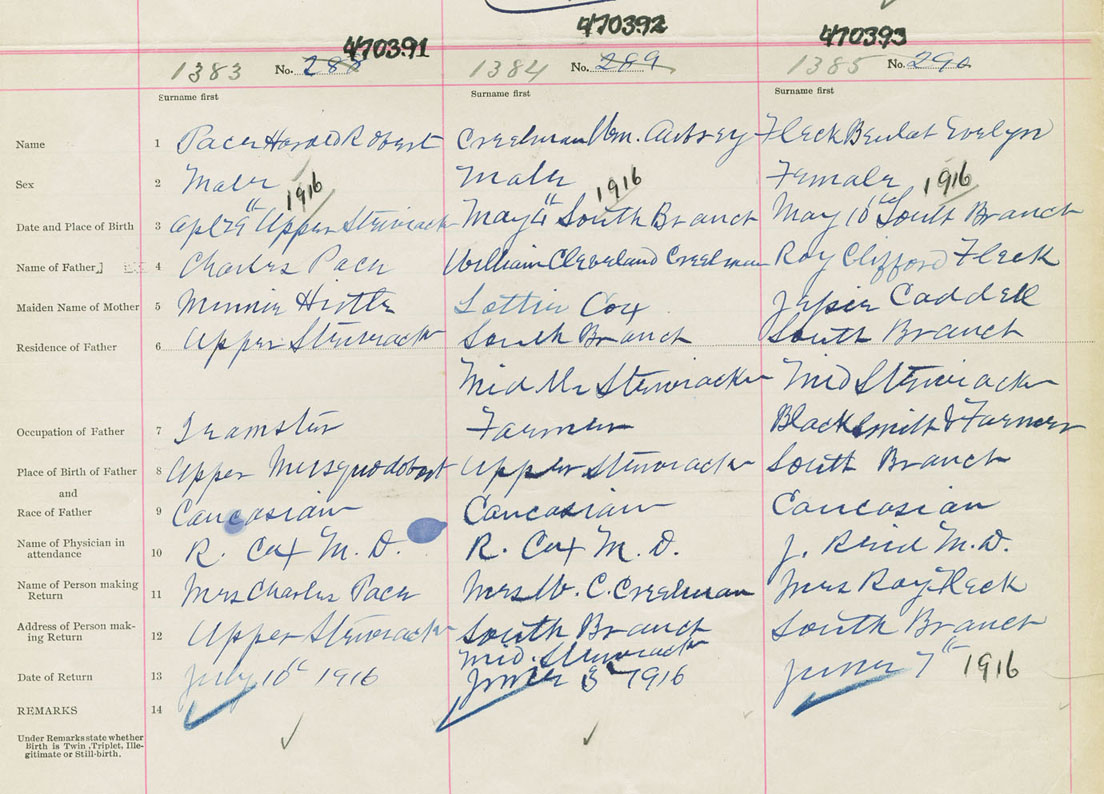 470391 470392 470393
1383 No. 288 1384 No. 289 1385 No. 290
Surname first Surname first Surname first
Name 1 Pace Harold Robert Creelman Wm. Aubrey Fleck Beulah Evelyn
Sex 2 Male Male Female
1916 1916 1916
Date and Place of Birth 3 Apl 29th Upper Stewiacke May 4th South Branch May 10th South Branch
Name of Father 4 Charles Pace William Cleveland Creelman Roy Clifford Fleck
Maiden Name of Mother 5 Minnie Lottie Cox Jessie Caddell
Residence of Father 6 Upper Stewiacke South Branch South Branch
Mid Stewiacke Mid Stewiacke
Occupation of Father 7 Teamster Farmer Blacksmith & Farmer
Place of Birth of Father 8 Upper Musquodoboit Upper Stewiacke South Branch
and
Race of Father 9 Caucasian Caucasian Caucasian
Name of Physician in
attendance 10 R. Cox M. D. R. Cox M. D. J. Reid M.D.
Name of Person making
Return 11 Mrs Charles Pace Mrs W. C. Creelman Mrs Roy Fleck
Address of Person mak-
ing Return 12 Upper Stewiacke South Branch South Branch
Mid. Stewiacke
Date of Return 13 July 10th 1916 June 1916 June 7th 1916
REMARKS 14
Under Remarks state whether
Birth is Twin, Triplet, Ille-
gitimate or Still-birth.